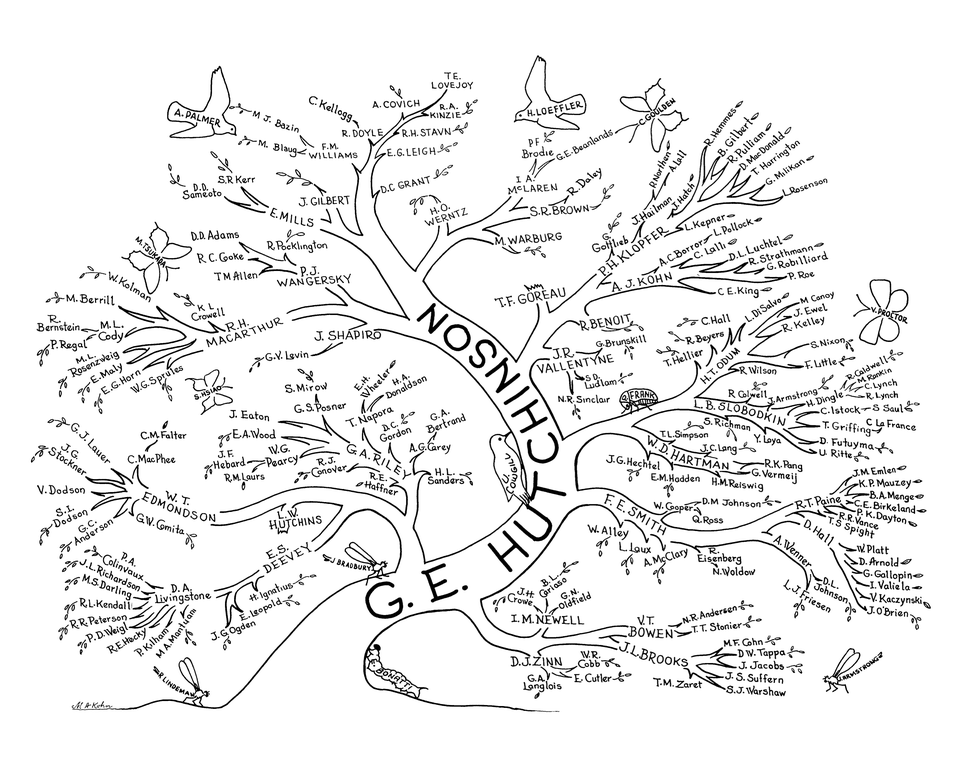 TE. LOVEJOY
A. COVICH
C. Kellogg
R.A. KINZIE
R. DOYLE
R.H. STAVN
E.G. LEIGH
D.C. GRANT
A. PALMER
M J. Bazin
M. Blaug
F.M. WILLIAMS
H. LOEFFLER
C. GOULDEN
P F Brodie
G.E. Beanlands
I A. McLAREN
R. Daley
S.R. BROWN
M. WARBURG
H.O. WERNTZ
S.R Kerr
D.D. Sameoto
J. GILBERT
E. MILLS
D.D. Adams
R. Pocklington
R.C. Cooke
T M Allen
P.J. WANGERSKY
M. TSUKADA
W. Kolman
M. Berrill
K L Crowell
R. Bernstein
M.L. Cody
P. Regal
M.L. Rosenzweig
E. Maly
E.G. Horn
W.G. Sproles
R.H. MACARTHUR
J. SHAPIRO
G.V. Levin
S. HSIAO
R. Hemmes
B. Gilbert
R. Pulliam
D. MacDonald
T. Harrington
G. Milikan
L. Rosenson
A. Lall
J. Hatch
J. Hailman
Gottlieb
P.H. KLOPFER
L. Kepner
L. Pollock
A.C. Borror
C. Lalli
D.L. Luchtel
R. Strathmann
G. Robilliard
P. Roe
C E. King
A. J. KOHN
T.F. GOREAU
R. BENOIT
G. Brunskill
J.R. VALLENTYNE
S D. Ludlam
N.R. Sinclair
P. FRANK
V. PROCTOR
C. Hall
R Beyers
T. Hellier
L. DiSalvo
M Canoy
J. Ewel
R. Kelley
S. Nixon
F. Little
R. Wilson
H.T. ODUM
R Colwell
J. Armstrong
H. Dingle
R. Caldwell
M. Rankin
C. Lynch
R. Lynch
C. Istock
S Saul
T. Griffing
C La France
D. Futuyma
U. Ritte
Y. Loya
S. Richman
L. B. SLOBODKIN
T.L. Simpson
J.C. Lang
R.K. Pang
G. Vermeij
H.M. Reiswig
E.M. Hodden
J.G. Hechtel
W. D. HARTMAN
S. Mirow
G. S. Posner
J. Eaton
E.A. Wood
J. F. Hebard
W.G. Pearcy
R.M. Laurs
R. J. Conover
E.H. Wheeler
H.A. Donaldson
T. Napora
D.C. Gordon
G.A. Bertrand
A.G. Carey
H.L. Sanders
R.E. Haffner
G. A. RILEY
G. J. Lauer
J. G Stockner
V. Dodson
S. I. Dodson
G.C. Anderson
C.M. Falter
C. MacPhee
W. T. EDMONDSON
G.W. Comita
L.W. HUTCHINS
E. S. DEEVEY
H. Ignatius
E. Leopold
J.G Ogden
P.A. Colinvaux
J.L. Richardson
M.S. Darling
R.L. Kendall
R.R. Peterson
P.D. Weigl
R.E. Hecky
P. Kilham
M A. Mantuani
D.A. Livingstone
J. BRADBURY
H. T. ODUM
G. E. HUTCHINSON
F. E. SMITH
W. Cooper
D.M Johnson
Q. Ross
W. Alley
L. Laux
A. McClary
R. Eisenberg
N. Woldow
R.T. Paine
J.M. Emlen
K.P. Mauzey
B.A. Menge
C.E. Birkeland
P. K. Dayton
R.R. Vance
T.S Spight
D. Hall
A. Wenner
W. Platt
D. Arnold
G. Gallopin
I. Valiela
V. Kaczynski
J. O'Brien
D. L. Johnson
L.J. Friesen
J.H. Crowe
G.N. Oldfield
I. M. NEWELL
V.T. BOWEN
N.R. Andersen
T.T. Stonier
J.L. BROOKS
M.F. Cohn
D.W. Tappa
J. Jacobs
J. S. Suffern
S.J. Warshaw
T.M. Zaret
D.J. ZINN
W.R. Cobb
E. Cutler
G.A. Langlois
E. BONATTI
R. LINDEMAN
J. ARMSTRONG
M.A. Kohn